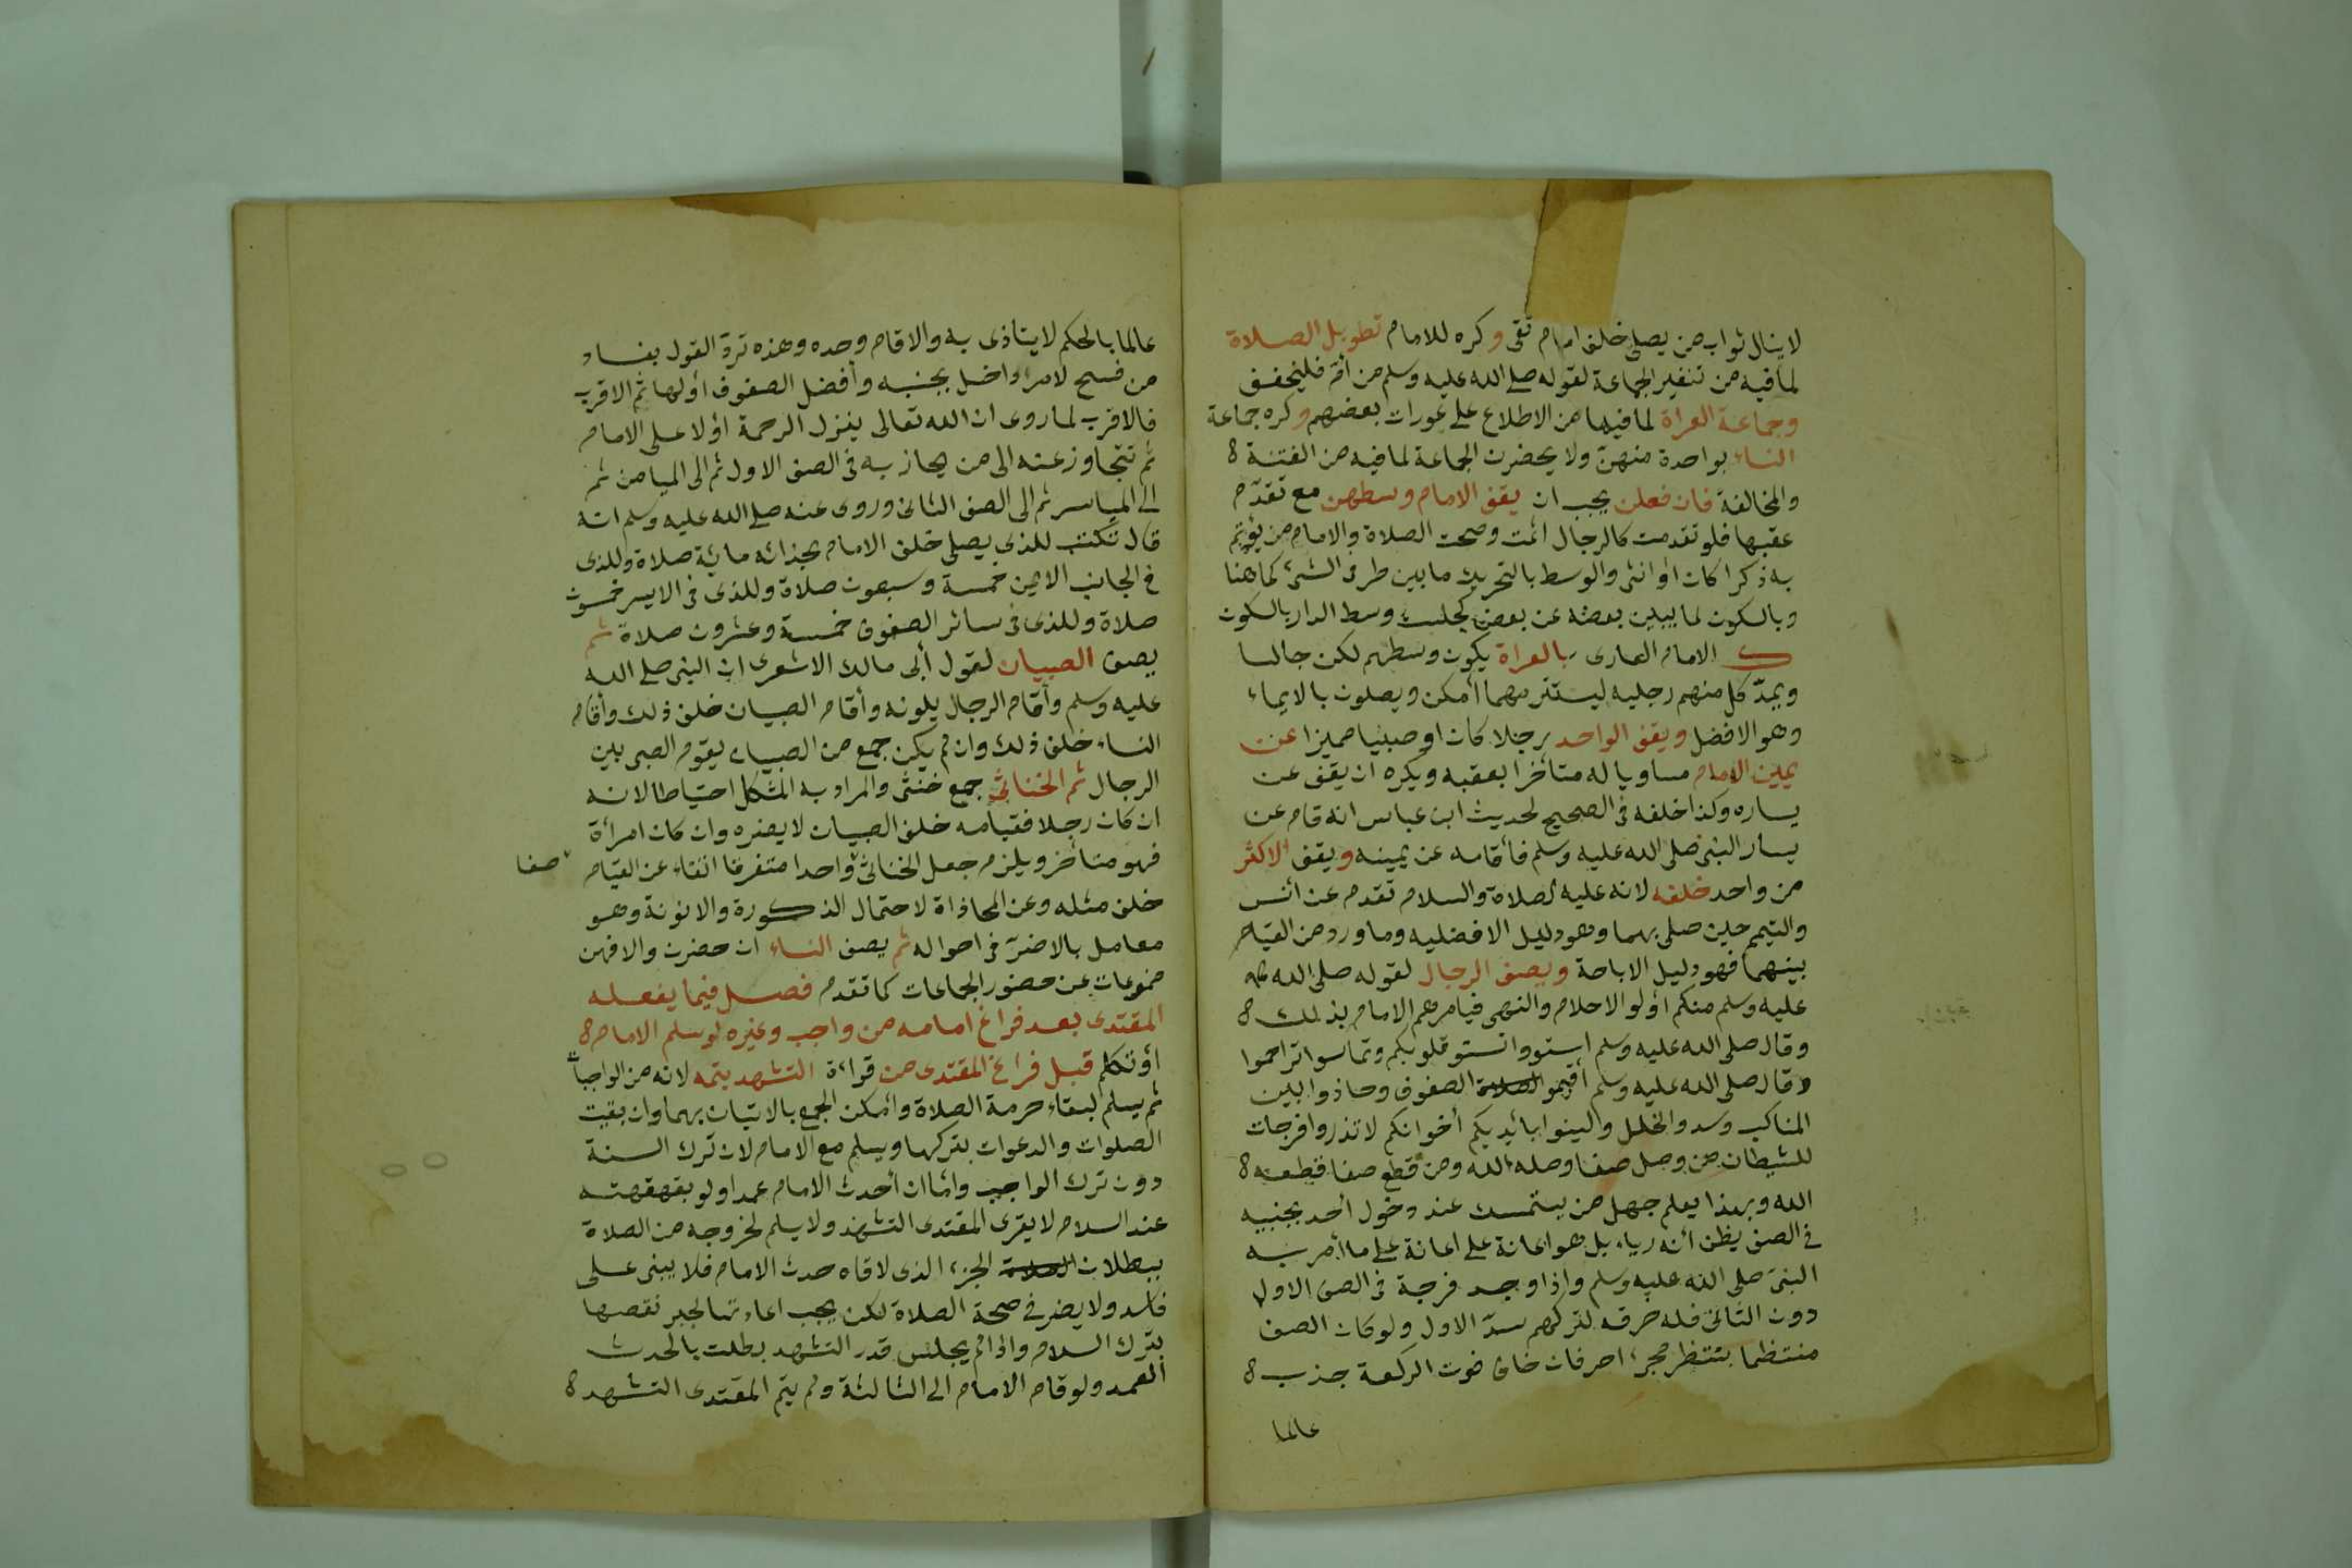 لاينال ثواب من يصلى خلف امام تقى وكره للامام تطويل الصلاة
لما فيه من تنفير الجماعة لقوله صلى الله عليه وسلم من أمّ فليخفف
وجماعة العراة لما فيها من الاطلاع على عورات بعضهم وكره جماعة
النساء بواحدة منهنّ ولا يحضرن الجماعة لما فيه من الفتنة
والمخالفة فان فعلن يجب ان يقف الامام وسطهن مع تقدّم
عقبها فلو تقدمت كالرجال اثمت وصحت الصلاة والامام من يؤتم
به ذكرا كان أو انثى والوسط بالتحريك ما بين طرفى الشئ كما هنا
وبالسكون لما يبين بعضه عن بعض كجلست وسط الدار بالسكون
كـ الامام العارى بالعراة يكون وسطهم لكن جالسا
ويمدّ كل منهم رجليه ليستتر مهما أمكن ويصلون بالايماء
وهو الافضل ويقف الواحد رجلا كان او صبيا مميزا عن
يمين الامام مساويا له متأخرا بعقبه ويكره ان يقف عن
يساره وكذا خلفه فى الصحيح لحديث ابن عباس انه قام عن
يسار النبى صلى الله عليه وسلم فأقامه عن يمينه ويقف الاكثر
من واحد خلفه لانه عليه الصلاة والسلام تقدم عن انس
واليتيم حين صلى بهما وهو دليل الافضليه وما ورد من القيام
بينهما فهو دليل الاباحة ويصف الرجال لقوله صلى الله
عليه وسلم منكم أولو الاحلام والنهى فيامرهم الامام بذلك
وقال صلى الله عليه وسلم استووا تستو قلوبكم وتماسوا تراحموا
وقال صلى الله عليه وسلم أقيموا الصلاة الصفوف وحاذوا بين
المناكب وسدوا الخلل ولينوا بأيديكم أخوانكم لا تذروا فرجات
للشيطان من وصل صفا وصله الله ومن قطع صفا قطعه
الله وبهذا يعلم جهل من يستمسك عند دخول أحد بجنبه
فى الصف يظن أنه رياء بل هو اعانة على اعانة على ما أمر به
النبى صلى الله عليه وسلم واذا وجد فرجة فى الصف الاول
دون الثانى فله خرقه لتركهم سدّ الاول ولو كان الصف
منتظما ينتظر مجئ احد فان خاف فوت الركعة جذب
عالما
عالما بالحكم لا يتاذى به والا قام وحده وهذه تردّ القول بفساد
من فسح لامرء داخل بجنبه وأفضل الصفوف أولها ثم الاقرب
فالاقرب لما روى ان الله تعالى ينزل الرحمة أولا على الامام
ثم تتجاوز عنه الى من يحازيه فى الصف الاول ثم الى الميامن ثم
الى المياسر ثم الى الصف الثانى وروى عنه صلى الله عليه وسلم انه
قال تكتب للذى يصلى خلف الامام بحذائه مائة صلاة وللذى
فى الجانب الايمن خمسة وسبعون صلاة وللذى فى الايسر خمسون
صلاة وللذى فى سائر الصفوف خمسة وعشرون صلاة ثم
يصف الصبيان لقول أبى مالك الاشعرى ان النبى صلى الله
عليه وسلم وأقام الرجال يلونه وأقام الصبيان خلف ذلك وأقام
النساء خلف ذلك وان لم يكن جمع من الصبيان يقوم الصبى بين
الرجال ثم الخناثى جمع خنثى والمراد به المشكل احتياطا لانه
ان كان رجلا فقيامه خلف الصبيان لا يضره وان كان امرأة
فهو متأخر ويلزم جعل الخناثى واحدا متفرقا اتقاء عن القيام
صفا
خلف مثله وعن المحاذاة لاحتمال الذكورة والانوثة وهو
معامل بالاضرّ فى احواله ثم يصف النساء ان حضرن والا فهن
ممنوعات عن حضور الجماعات كما تقدم فصل فيما يفعله
المقتدى بعد فراغ امامه من واجب وغيره لو سلم الامام
أو تكلم قبل فراغ المقتدى من قراءة التشهد يتمه لانه من الواجبات
ثم يسلم لبقاء حرمة الصلاة وأمكن الجمع بالاتيان بهما وان بقيت
الصلوات والدعوات يتركها ويسلم مع الامام لان ترك السنة
دون ترك الواجب واما ان أحدث الامام عمدا ولو بقهقهته
عند السلام لا يقرى المقتدى التشهد ولا يسلم لخروجه من الصلاة
ببطلان الصلاة الجزء الذى لاقاه حدث الامام فلا يبنى على
فاسد ولا يضر فى صحة الصلاة لكن يجب اعادتها لجبر نقصها
بترك السلام واذا لم يجلس قدر التشهد بطلت بالحدث
العمد ولو قام الامام الى الثالثة ولم يتم المقتدى التشهد